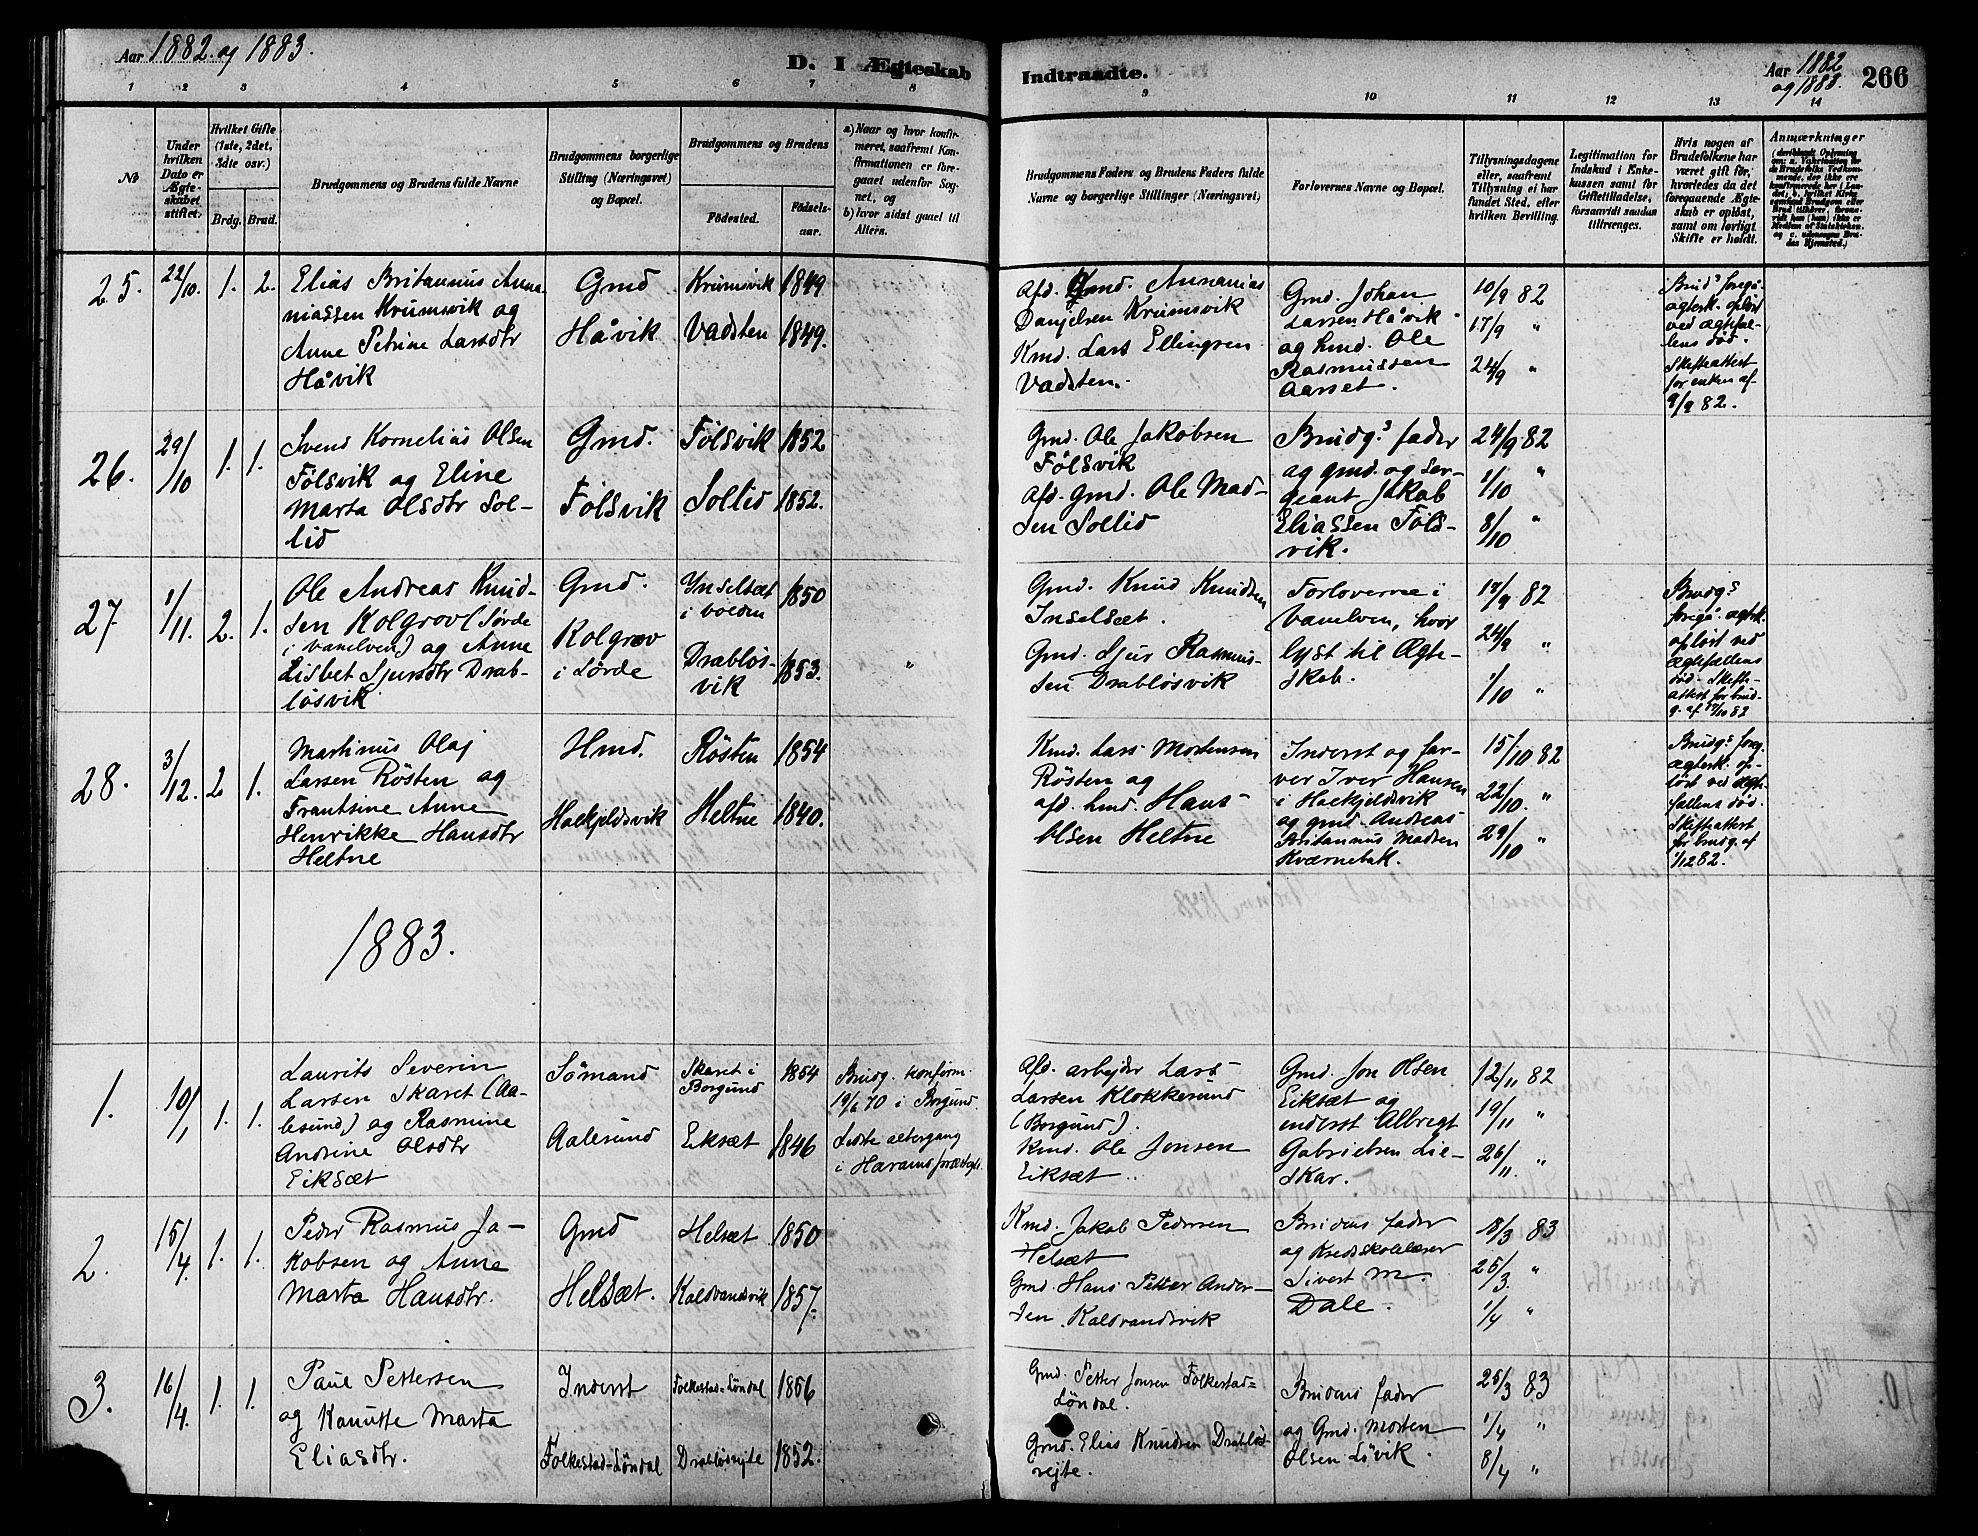 Aar 1882. og 1883.
D. I Ægteskab
Indtraadte.
Aar 1882
og 1883.
266
1 2 3 4 5 6 7 8 9 10 11 12 13 14
No
Under hvilken Dato er Ægteskabet stiftet.
Hvilket Gifte (1ste, 2det, 3die osv.)
Brdg. Brud.
Brudgommens og Brudens fulde Navne
Brudgommens borgerlige Stilling (Næringsvei) og Bopæl.
Brudgommens og Brudens
Fødested.
Fødselsaar.
a) Naar og hvor konfirmeret, saafremt Konfirmationen er foregaaet udenfor Sognet, og
b) hvor sidst gaaet til Alters.
Brudgommens Faders og Brudens Faders fulde Navne og borgerlige Stillinger (Næringsvei)
Forlovernes Navne og Bopæl.
Tillysningsdagene eller, saafremt Tillysning ei har fundet Sted, efter hvilken Bevilling.
Legitimation for Indskud i Enkekassen samt for Giftetilladelse, forsaavidt saadan tiltrænges.
Hvis nogen af Brudefolkene har været gift før, hvorledes da det foregaaende Ægteskab er opløst, samt om lovligt Skifte er holdt.
Anmærkninger
25. 22/10. 1. 2.
Elias Britannus Anna-
niassen Krumsvik og
Anne Petrine Larsdtr
Håvik
Gmd
Håvik
Krumsvik 1849
Vadsten 1849.
Afd. Gmd. Annanias
Danjelsen Krumsvik
Kmd. Lars Ellingsen
Vadsten.
Gmd. Johan
Larsen Håvik
og kmd. Ole
Rasmussen
Aarset.
10/9 82
17/9 "
24/9 "
Brud's foregå.
ægtesk. opløst
ved ægtefæl-
lens død.
Skifteattest
for enken af
9/9 82.
26. 29/10 1. 1.
Svend Kornelius Olsen
Følsvik og Eline
Marta Olsdtr Sol-
lid
Gmd.
Følsvik
Følsvik 1852
Sollid 1852.
Gmd. Ole Jakobsen
Følsvik
Afd. Gmd. Ole Mad-
sen Sollid
Brudg.s fader
og gmd. og ser-
geant Jakob
Eliassen Føls-
vik.
24/9 82
1/10 "
8/10 "
27. 1/11. 2. 1.
Ole Andreas Knud-
sen Kolgrov (Sørde
i Vanelven) og Anne
Lisbet Sjursdtr Drab-
løsvik
Gmd.
Kolgrov
i Sørde
Ynselsæt
i Volden 1850
Drabløs-
vik 1853.
"
Gmd. Knud Knudsen
Inselsæt.
Gmd. Sjur Rasmus-
sen Drabløsvik
Forloverne i
Vanelven, hvor
lyst til Ægte-
skab.
17/9 82
24/9 "
1/10 "
Brudg.s
foregå. ægtesk.
opløst ved
ægtefællens
død. Skifte-
attest for brud-
g. af 17/10 82
28. 3/12. 2. 1.
Martinus Olaj
Larsen Røsten og
Frantsine Anne
Henrikke Hansdtr
Heltne
Hmd.
Haekjeldsvik
Røsten 1854
Heltne 1840.
Kmd. Lars Mortensen
Røsten og
afd. hmd. Hans
Olsen Heltne
Inderst og far-
ver Iver Hansen
i Haekjeldsvik
og gmd. Andreas
Britannus Madsen
Kværnebak.
15/10 82
22/10. "
29/10 "
Brudg.s foreg.
ægtesk. op-
løst ved ægte-
fællens død.
Skifteattest
for brudg. af
1/12 82.
1883.
1. 10/1 1. 1.
Laurits Severin
Larsen Skaret (Aa-
lesund) og Rasmine
Andrine Olsdtr
Eiksæt
Sømand
Aalesund
Skaret i
Borgund 1854
Eiksæt 1846
Brudg. konfirm.
19/6 70 i Borgund.
Sidste altergang
i Harams præstegj.
Afd. arbejder Lars
Larsen Klokkesund
(Borgund).
Kmd. Ole Jonsen
Eiksæt
Gmd. Jon Olsen
Eiksæt og
inderst Albregt
Gabrielsen Lie-
skar.
12/11 82
19/11 "
26/11. "
2. 15/4. 1. 1.
Peder Rasmus Ja-
kobsen og Anne
Marta Hansdtr.
Gmd
Helsæt.
Helsæt 1850
Kaldvandsvik 1857.
Kmd. Jakob Pedersen
Helsæt
Gmd. Hans Petter Ander-
sen Kaldvandsvik
Brudens fader
og Kredsskolelærer
Sivert M.
Dale.
18/3 83
25/3. "
1/4 "
3. 16/4. 1. 1.
Paul Pettersen
og Kanutte Marta
Eliasdtr.
Inderst
Folkestad-Løndal
Folkestad-Løndal 1856
Drabløsrejte 1852.
Gmd. Petter Jonsen Folkestad-
Løndal.
Gmd. Elias Knudsen Drabløs-
rejte.
Brudens fader
og Gmd. Morten
Olsen Løvik.
25/3 83
1/4 "
8/4 "